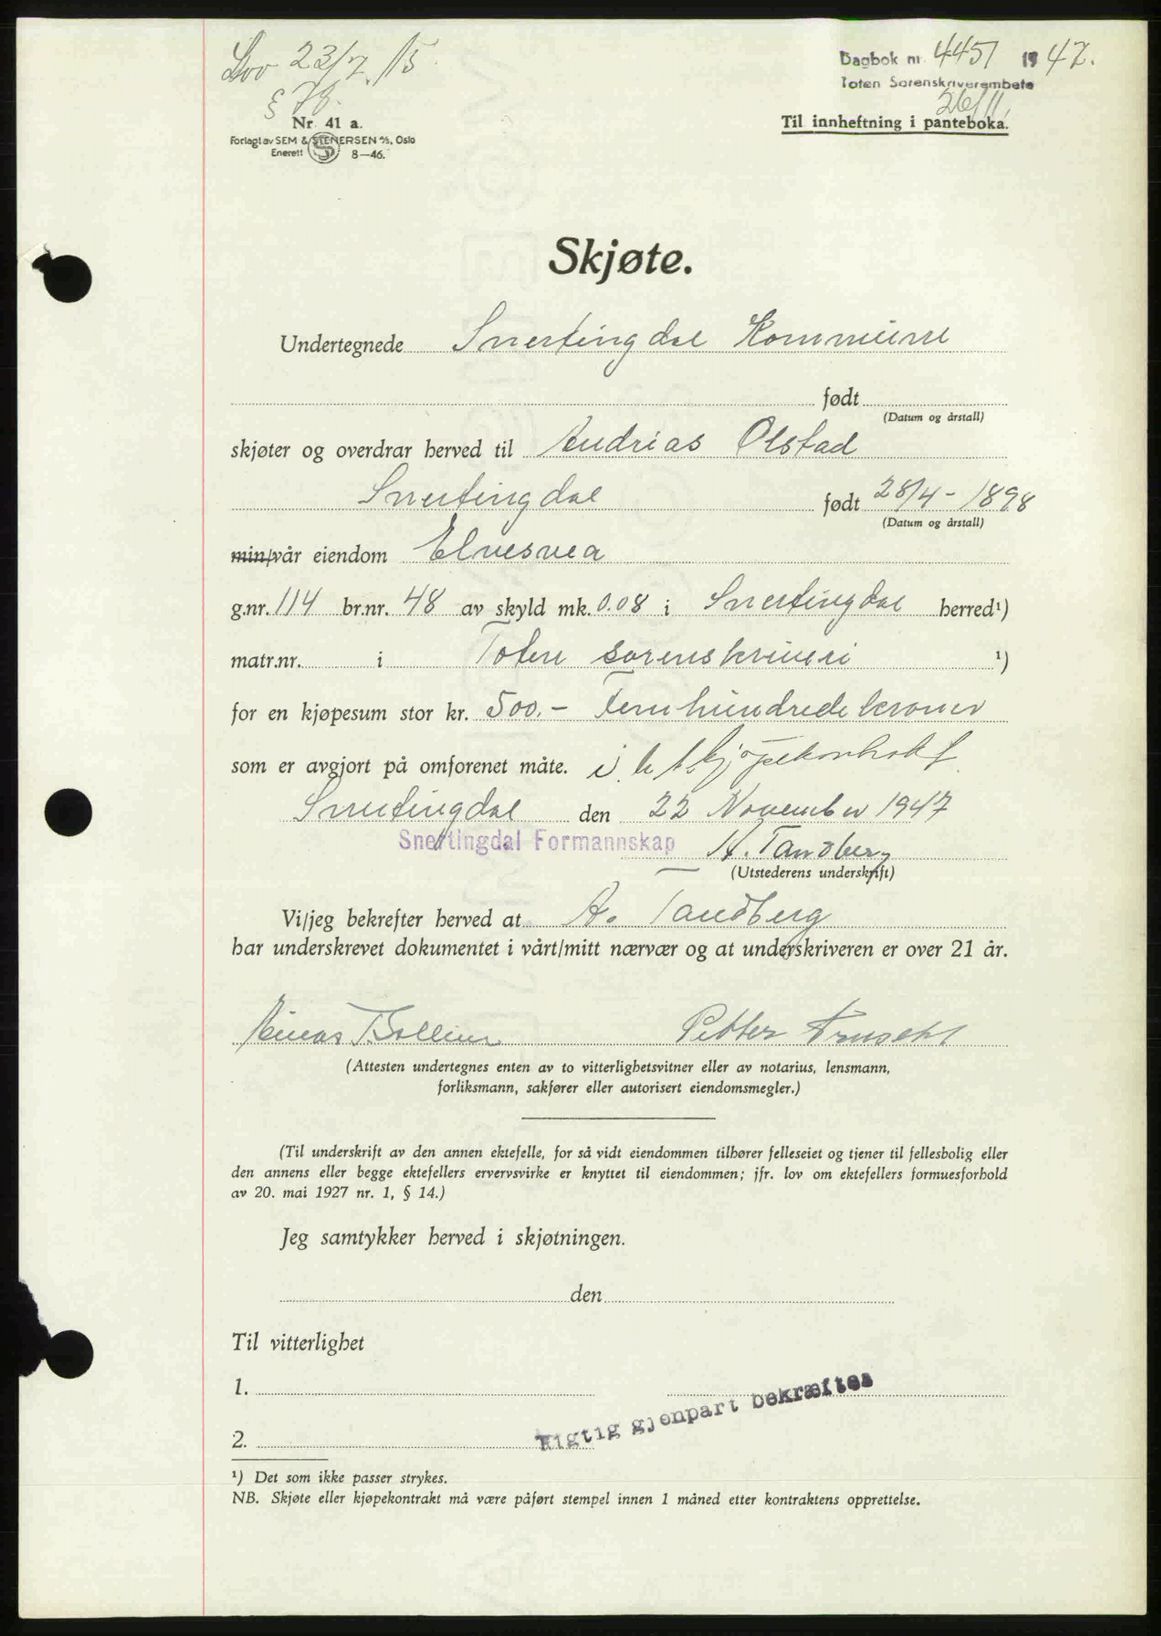 Lov 23/7. 15.
§ 78.
Nr. 41 a.
Forlagt av SEM & STENERSEN A/S, Oslo
Enerett 8—46.
Dagbok nr. 4451 1947.
Toten Sorenskriverembete
26/11.
Til innheftning i panteboka.
Skjøte.
Undertegnede Snertingdal Kommune
født
(Datum og årstall)
skjøter og overdrar herved til Andrias Olstad
Snertingdal født 28/4 - 1898
(Datum og årstall)
min/vår eiendom Elvesvea
g.nr. 114 br.nr. 48 av skyld mk. 0.08 i Snertingdal herred¹)
matr.nr. i Toten sorenskriveri ¹)
for en kjøpesum stor kr. 500.- Femhundrede kroner
som er avgjort på omforenet måte. i h. t. kjøpekontrakt
Snertingdal den 22 November 1947
Snertingdal Formannskap A. Tandberg
(Utstederens underskrift)
Vi/jeg bekrefter herved at A. Tandberg
har underskrevet dokumentet i vårt/mitt nærvær og at underskriveren er over 21 år.
Petter
(Attesten undertegnes enten av to vitterlighetsvitner eller av notarius, lensmann,
forliksmann, sakfører eller autorisert eiendomsmegler.)
(Til underskrift av den annen ektefelle, for så vidt eiendommen tilhører felleseiet og tjener til fellesbolig eller
den annens eller begge ektefellers ervervsvirke er knyttet til eiendommen; jfr. lov om ektefellers formuesforhold
av 20. mai 1927 nr. 1, § 14.)
Jeg samtykker herved i skjøtningen.
den
Til vitterlighet
1.
2.
Rigtig gjenpart bekræftes
¹) Det som ikke passer strykes.
NB. Skjøte eller kjøpekontrakt må være påført stempel innen 1 måned etter kontraktens opprettelse.